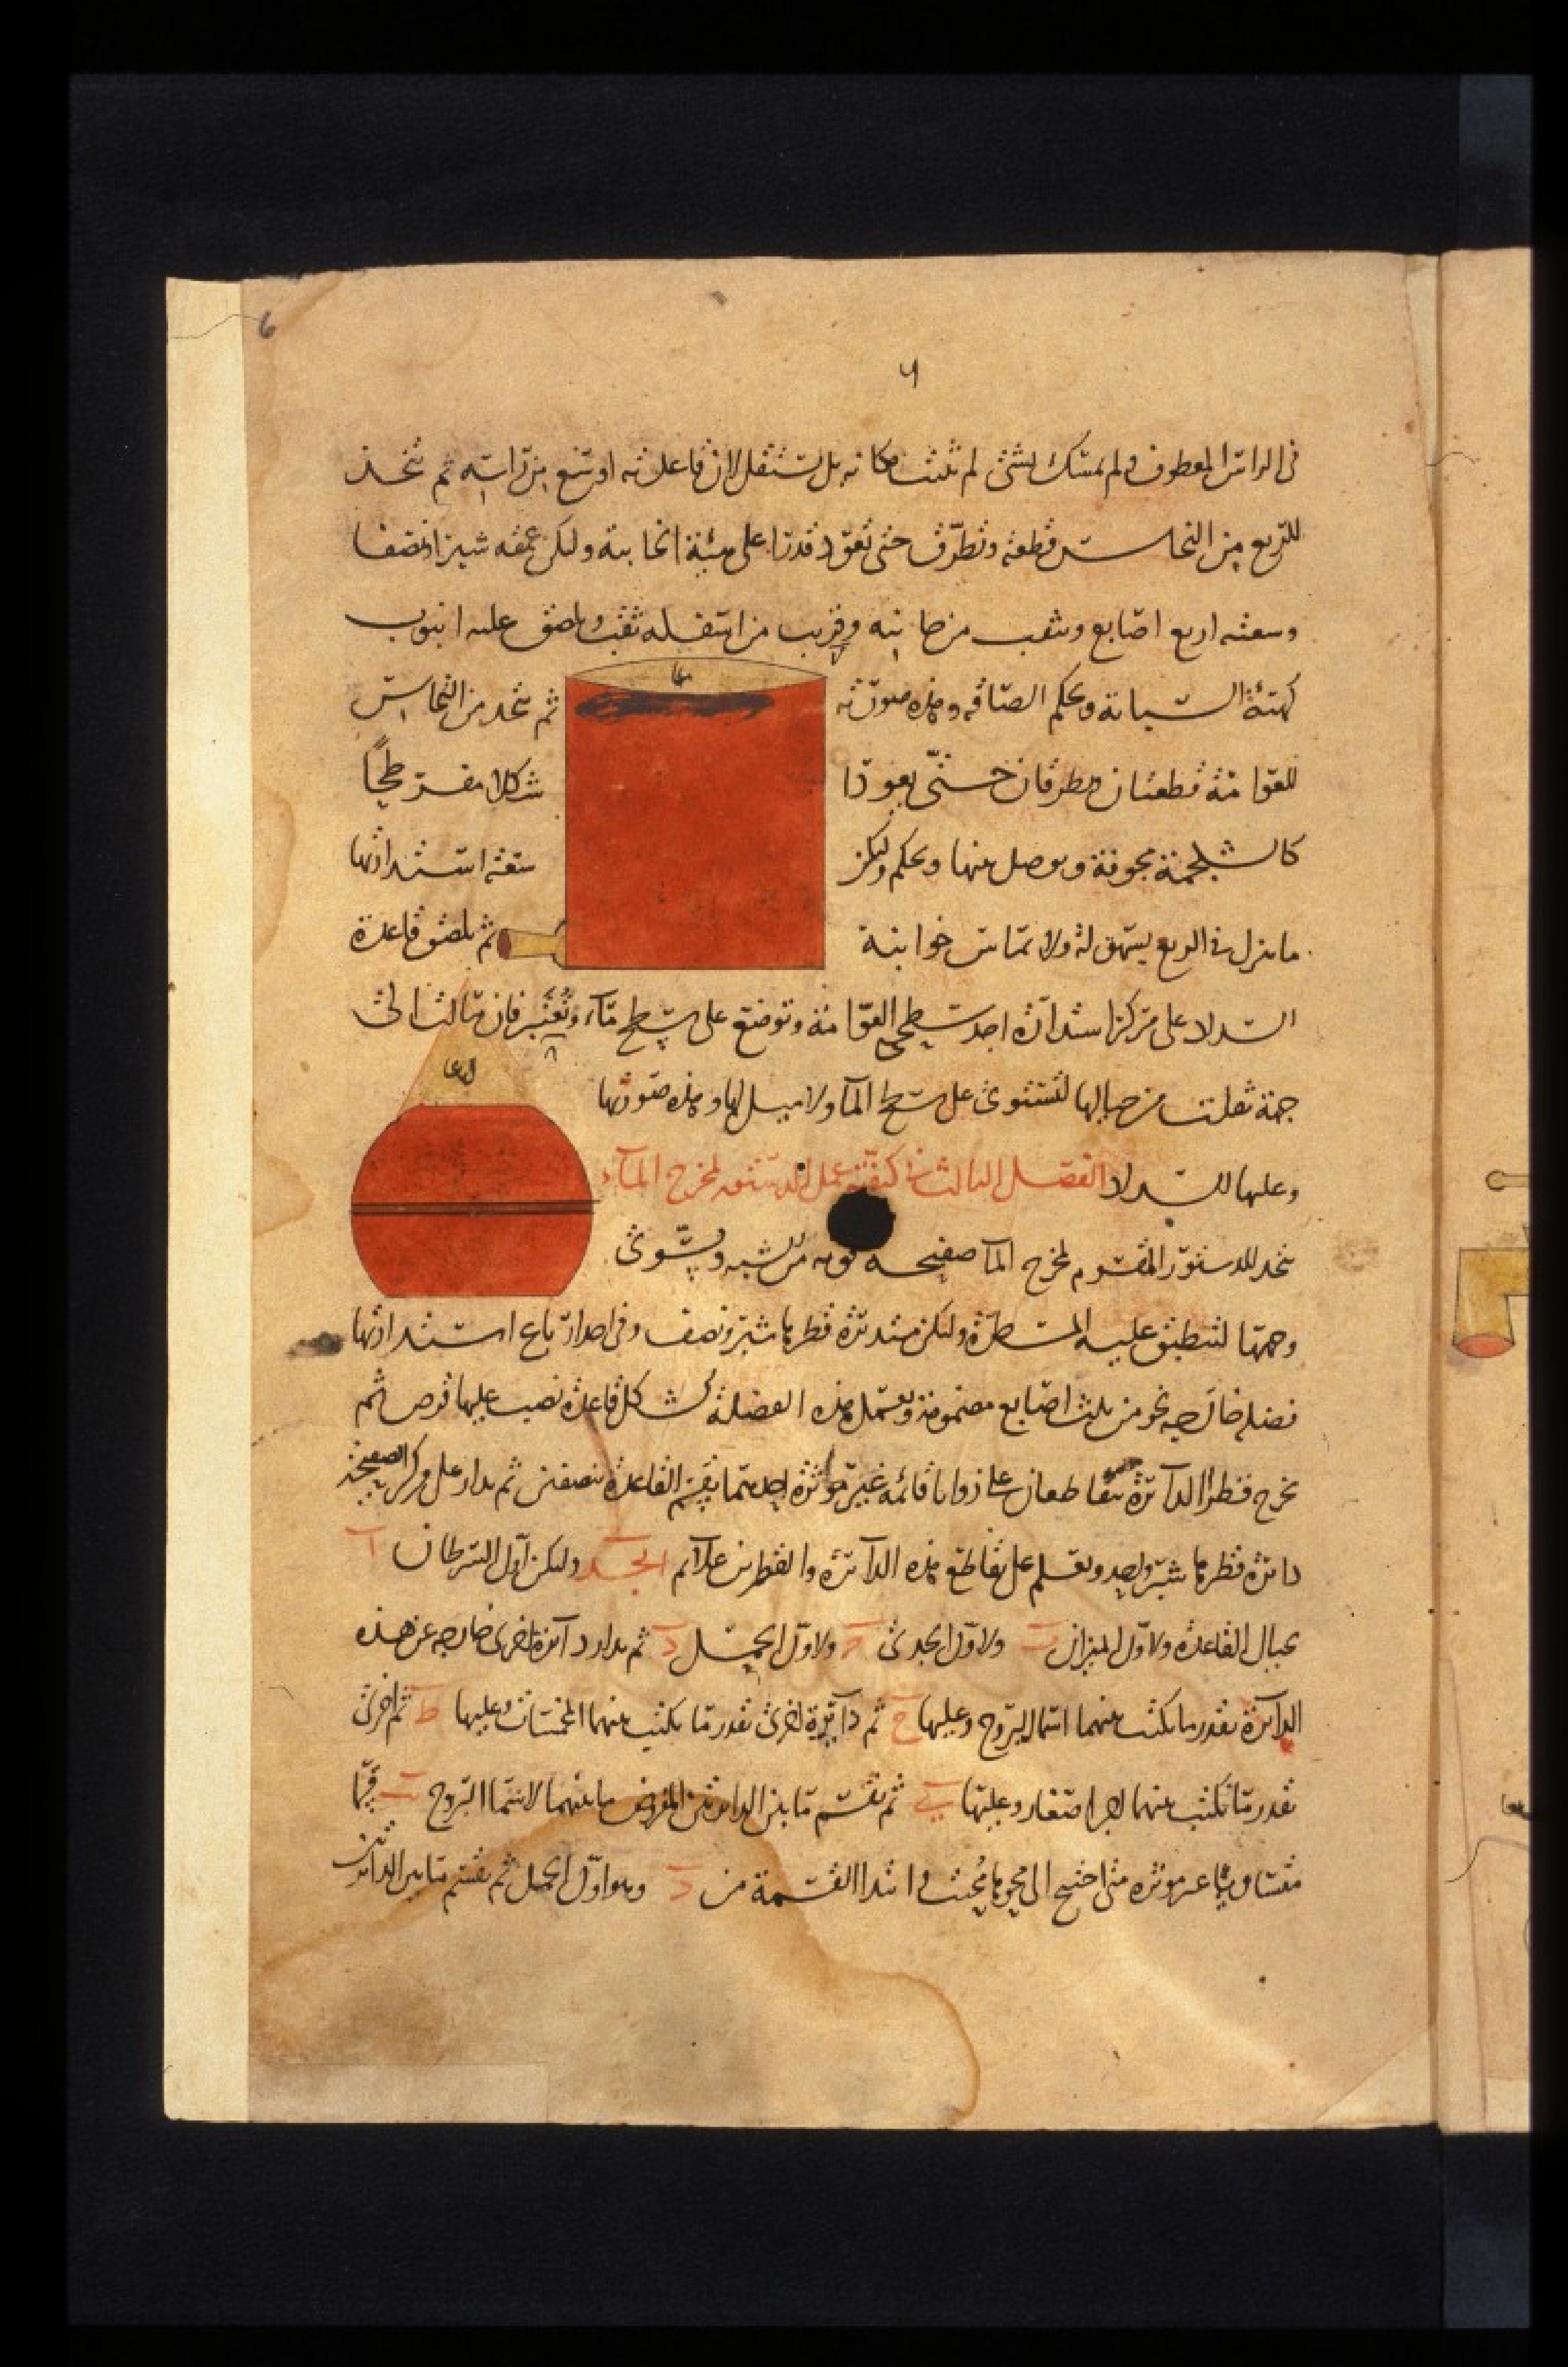 6
في الراس المعطوف ولم يمسك بشئ لم تثبت مكانه بل تستثقل لان قاعدته اوسع من راسه ثم تتخذ
للربع من النحاس قطعة وتطرق حتى تعود قدرا على هيئة الخابية وليكن عمقه شبرا ونصفا
وسعته اربع اصابع ويثقب من جانبه وقريب من اسفله ثقب ويلصق عليه انبوب
كهيئة السبابة ويحكم الصاقه وهذه صورته ثم تتخذ من النحاس
للعوامة قطعتان وتطرقان حتى يعودا شكلا مفرطحا
كالشلجمة مجوفة ويوصل بينهما ويحكم وليكن سعة استدارتها
ما ينزل في الربع بسهولة ولا تماس جوانبه ثم يلصق قاعدة
السداد على مركز استدارة احد سطحي العوامة وتوضع على سطح ماء وتعتبر فان مالت الى
جهة ثقلت من حيالها لتستوي على سطح الماء ولا ميل لها وهذه صورتها
وعليها للسداد الفصل الثالث في كيفية عمل الدستور لمخرج الماء
تتخذ للدستور المقسوم لمخرج الماء صفيحة قوية من الشبه ويسوى
وجهها لتنطبق عليه المسطرة ولتكن مستديرة قطرها شبر ونصف وفي احد ارباع استدارتها
فضلة خارجة نحو من ثلث اصابع مضمومة ويعمل هذه الفضلة كشكل قاعدة نصب عليها قرص ثم
تخرج قطرا الدائرة يتقاطعان على زوايا قائمة غير موثرة احدهما يقسم القاعدة بنصفين ثم يدار على مركز الصفيحة
دائرة قطرها شبر واحد ويعلم على تقاطع هذه الدائرة والقطرين علائم ا ب ج د وليكن اول السرطان ا
بحيال القاعدة ولاول الميزان ب ولاول الجدي ج ولاول الحمل د ثم يدار دائرة اخرى خارجة عن هذه
الدائرة بقدر ما يكتب بينهما اسماء البروج وعليها ح ثم دائرة اخرى بقدر ما يكتب بينهما الخمسات وعليها ط ثم اخرى
بقدر ما يكتب بينهما اجزا صغار وعليها ي ثم تقسم ما بين الدائرتين المفروض ما بينهما لاسما البروج يب قسما
متساوية غير موثرة متى احتيج الى محوها محيت وابتدا القسمة من د وهو اول الحمل ثم تقسم ما بين الدائرتين